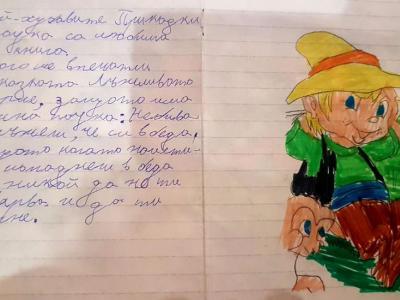 й-хубавите Приказки
поука са любима
книга.
ого ме впечатли
казката Лъжливото
рче, защото има
на поука: Не бива
лъжеш, че си в беда,
щото когато наисти-
попаднеш в беда
никой да не ти
ярва и да ти
не.